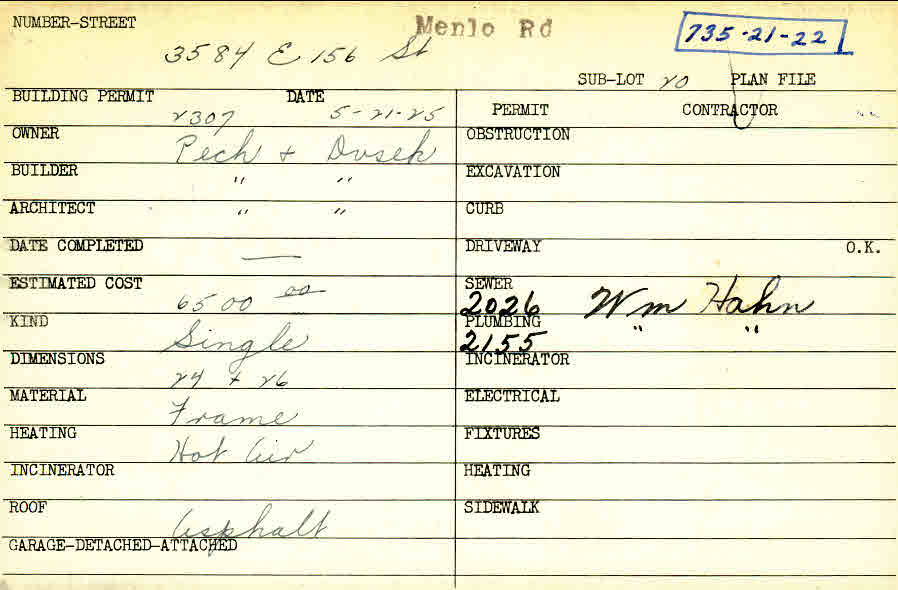 NUMBER-STREET Menlo Rd 735-21-22
3584 E 156 St
SUB-LOT 20 PLAN FILE
BUILDING PERMIT 2307 DATE 5-21-25
PERMIT CONTRACTOR
OWNER Pech + Dusek
OBSTRUCTION
BUILDER " "
EXCAVATION
ARCHITECT " "
CURB
DATE COMPLETED —
DRIVEWAY O.K.
ESTIMATED COST 6500 00
SEWER 2026 Wm Hahn
KIND Single
PLUMBING 2155 " "
DIMENSIONS 24 + 26
INCINERATOR
MATERIAL Frame
ELECTRICAL
HEATING Hot Air
FIXTURES
INCINERATOR
HEATING
ROOF Asphalt
SIDEWALK
GARAGE-DETACHED-ATTACHED